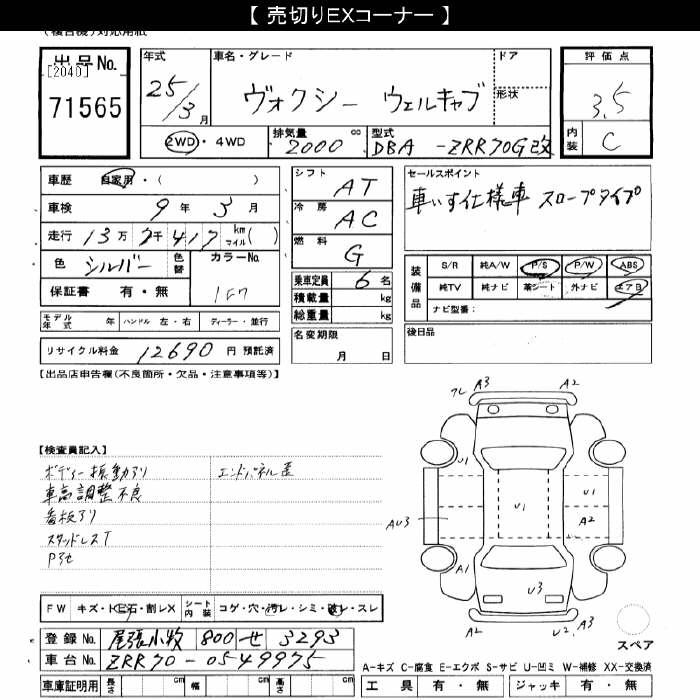 【 売切りEXコーナー 】
出品No.
[2040]
71565
年式
25/3月
車名・グレード
ヴォクシー ウェルキャブ
ドア
形状
評価点
3.5
内装
C
2WD・4WD
排気量
2000 cc
型式
DBA -ZRR70G改
車歴 自家用・( )
車検 9年 3月
走行 13万 2千 417 km マイル( )
色 シルバー 色替 カラーNo. 1F7
保証書 有・無
シフト AT
冷房 AC
燃料 G
乗車定員 6名
積載量 kg
総重量 kg
セールスポイント
車いす仕様車 スロープタイプ
装備品
S/R 純A/W P/S P/W ABS
純TV 純ナビ 革シート 外ナビ エアB
ナビ型番:
モデル年式 年 ハンドル 左・右 ディーラー・並行
名変期限
月 日
後日品
リサイクル料金 12690 円 預託済
【出品店申告欄(不良箇所・欠品・注意事項等)】
【検査員記入】
ボディー振動アリ
エンドパネル歪
車高調整不良
看板アリ
スタッドレスT
A3
A2
U1
U1
U1
A2
AU3
A1
U3
A2
U2.
U3
FW キズ・飛石・割レX
シート内装 コゲ・穴・汚レ・シミ・破レ・スレ
登録No. 尾張小牧 800 せ 3293
車台No. ZRR70-0549975
車庫証明用 長さ cm 幅 cm 高さ cm
スペア
A-キズ C-腐食 E-エクボ S-サビ U-凹ミ W-補修 XX-交換済
工具 有・無 ジャッキ 有・無